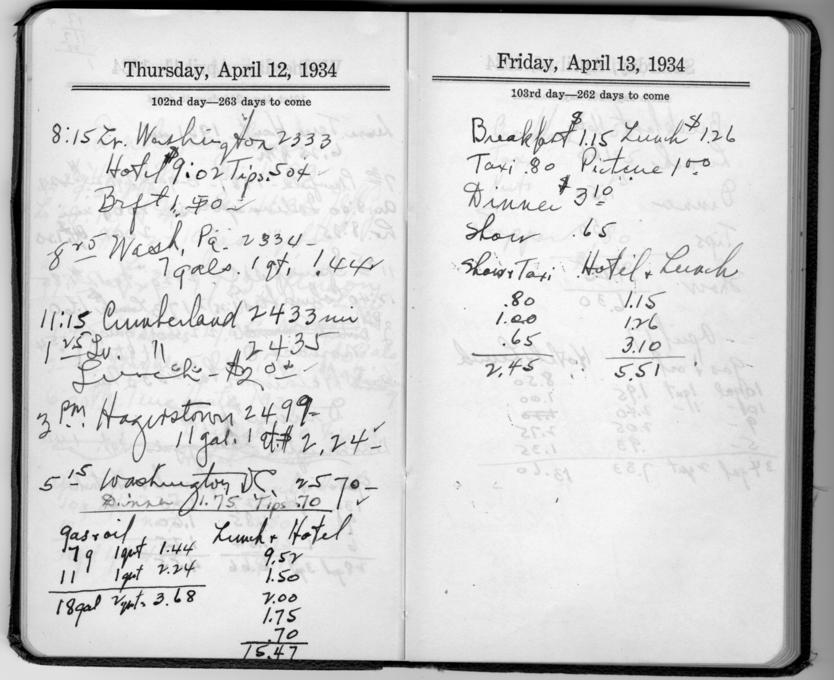 Thursday, April 12, 1934
102nd day—263 days to come
8:15 Lv. Washington 2333
Hotel $9.02 Tips .50¢
Brft 1.50
8 25 Wash, Pa. 2334
7 gals. 1 qt. 1.44
11:15 Cumberland 2433 mi
1 25 Lv. " 2435
Lunch $2.00
3 P.M. Hagerstown 2499
11 gal. 1 qt. $2.24
5 15 Washington DC. 2570
Dinner 1.75 Tips .70
gas & oil Lunch & Hotel
7 g 1 qrt 1.44 9.52
11 1 qrt 2.24 1.50
18 gal 2 qrts 3.68 2.00
1.75
.70
15.47
Friday, April 13, 1934
103rd day—262 days to come
Breakfast $1.15 Lunch $1.26
Taxi .80 Picture 1.00
Dinner $3.10
Show .65
Show & Taxi Hotel & Lunch
.80 1.15
1.00 1.26
.65 3.10
2.45 5.51